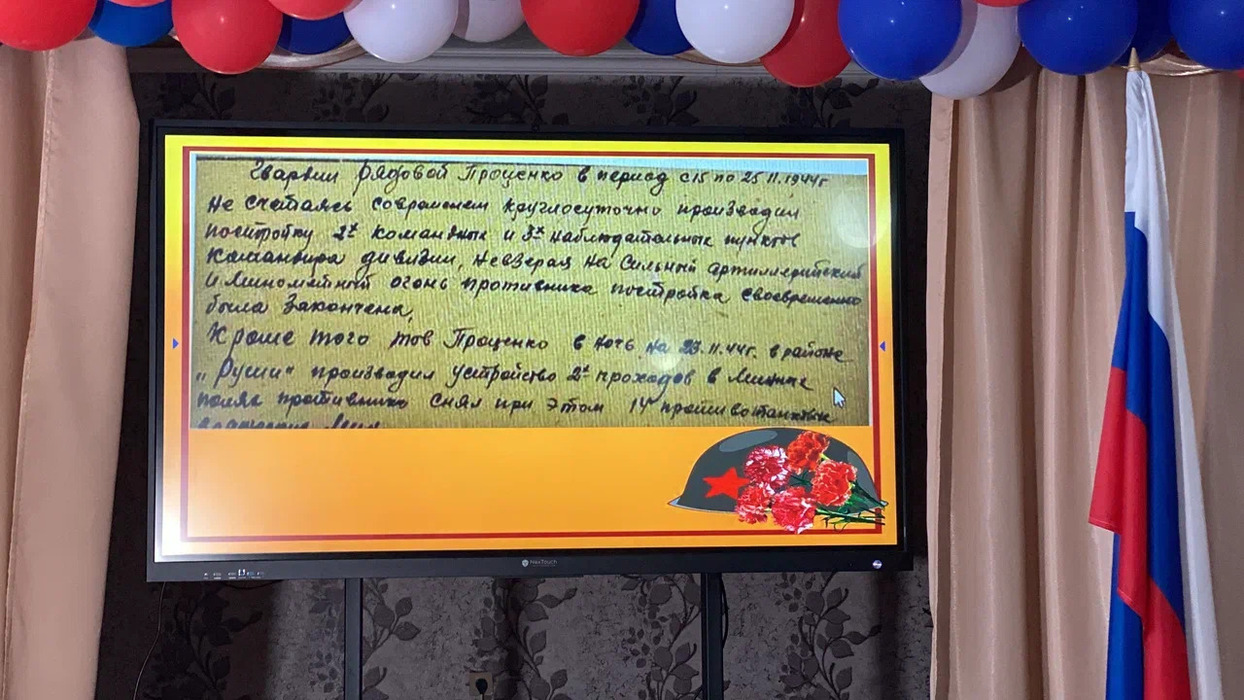 Гвардии рядовой Проценко в период с 15 по 25.11.1944г
не считаясь со временем круглосуточно производил
постройку 2х командных и 3х наблюдательных пунктов
командира дивизии, невзирая на сильный артиллерийский
и минометный огонь противника постройка своевременно
была закончена.
Кроме того тов Проценко в ночь на 23.11.44г. в районе
„Руши" производил устройство 2х проходов в минных
полях противника снял при этом 14 противотанковых